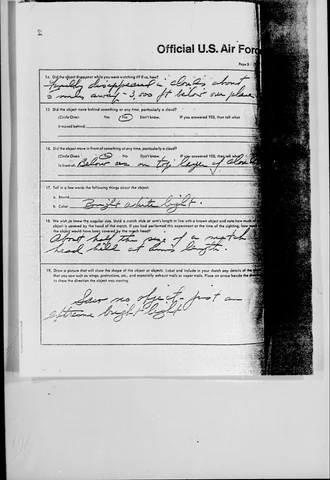 Official U.S. Air Forc
Page 3
14. Did the object disappear while you were watching it? If so, how?
Finally disappeared in clouds about
miles away - 3,000 ft below our plane
15. Did the object move behind something at any time, particularly a cloud?
(Circle One): Yes No Don't know. If you answered YES, then tell what
it moved behind:
16. Did the object move in front of something at any time, particularly a cloud?
(Circle One): Yes No Don't know. If you answered YES, then tell what
in front of: Below us on top layer of clouds
17. Tell in a few words the following things about the object:
a. Sound
b. Color Bright white light.
18. We wish to know the angular size. Hold a match stick at arm's length in line with a known object and note how much of
object is covered by the head of the match. If you had performed this experiment at the time of the sighting, how much
the object would have been covered by the match head?
About half the size of a match
head held at arms length.
19. Draw a picture that will show the shape of the object or objects. Label and include in your sketch any details of the
that you saw such as wings, protrusions, etc., and especially exhaust trails or vapor trails. Place an arrow beside the
to show the direction the object was moving.
Saw no object just an
extreme bright light